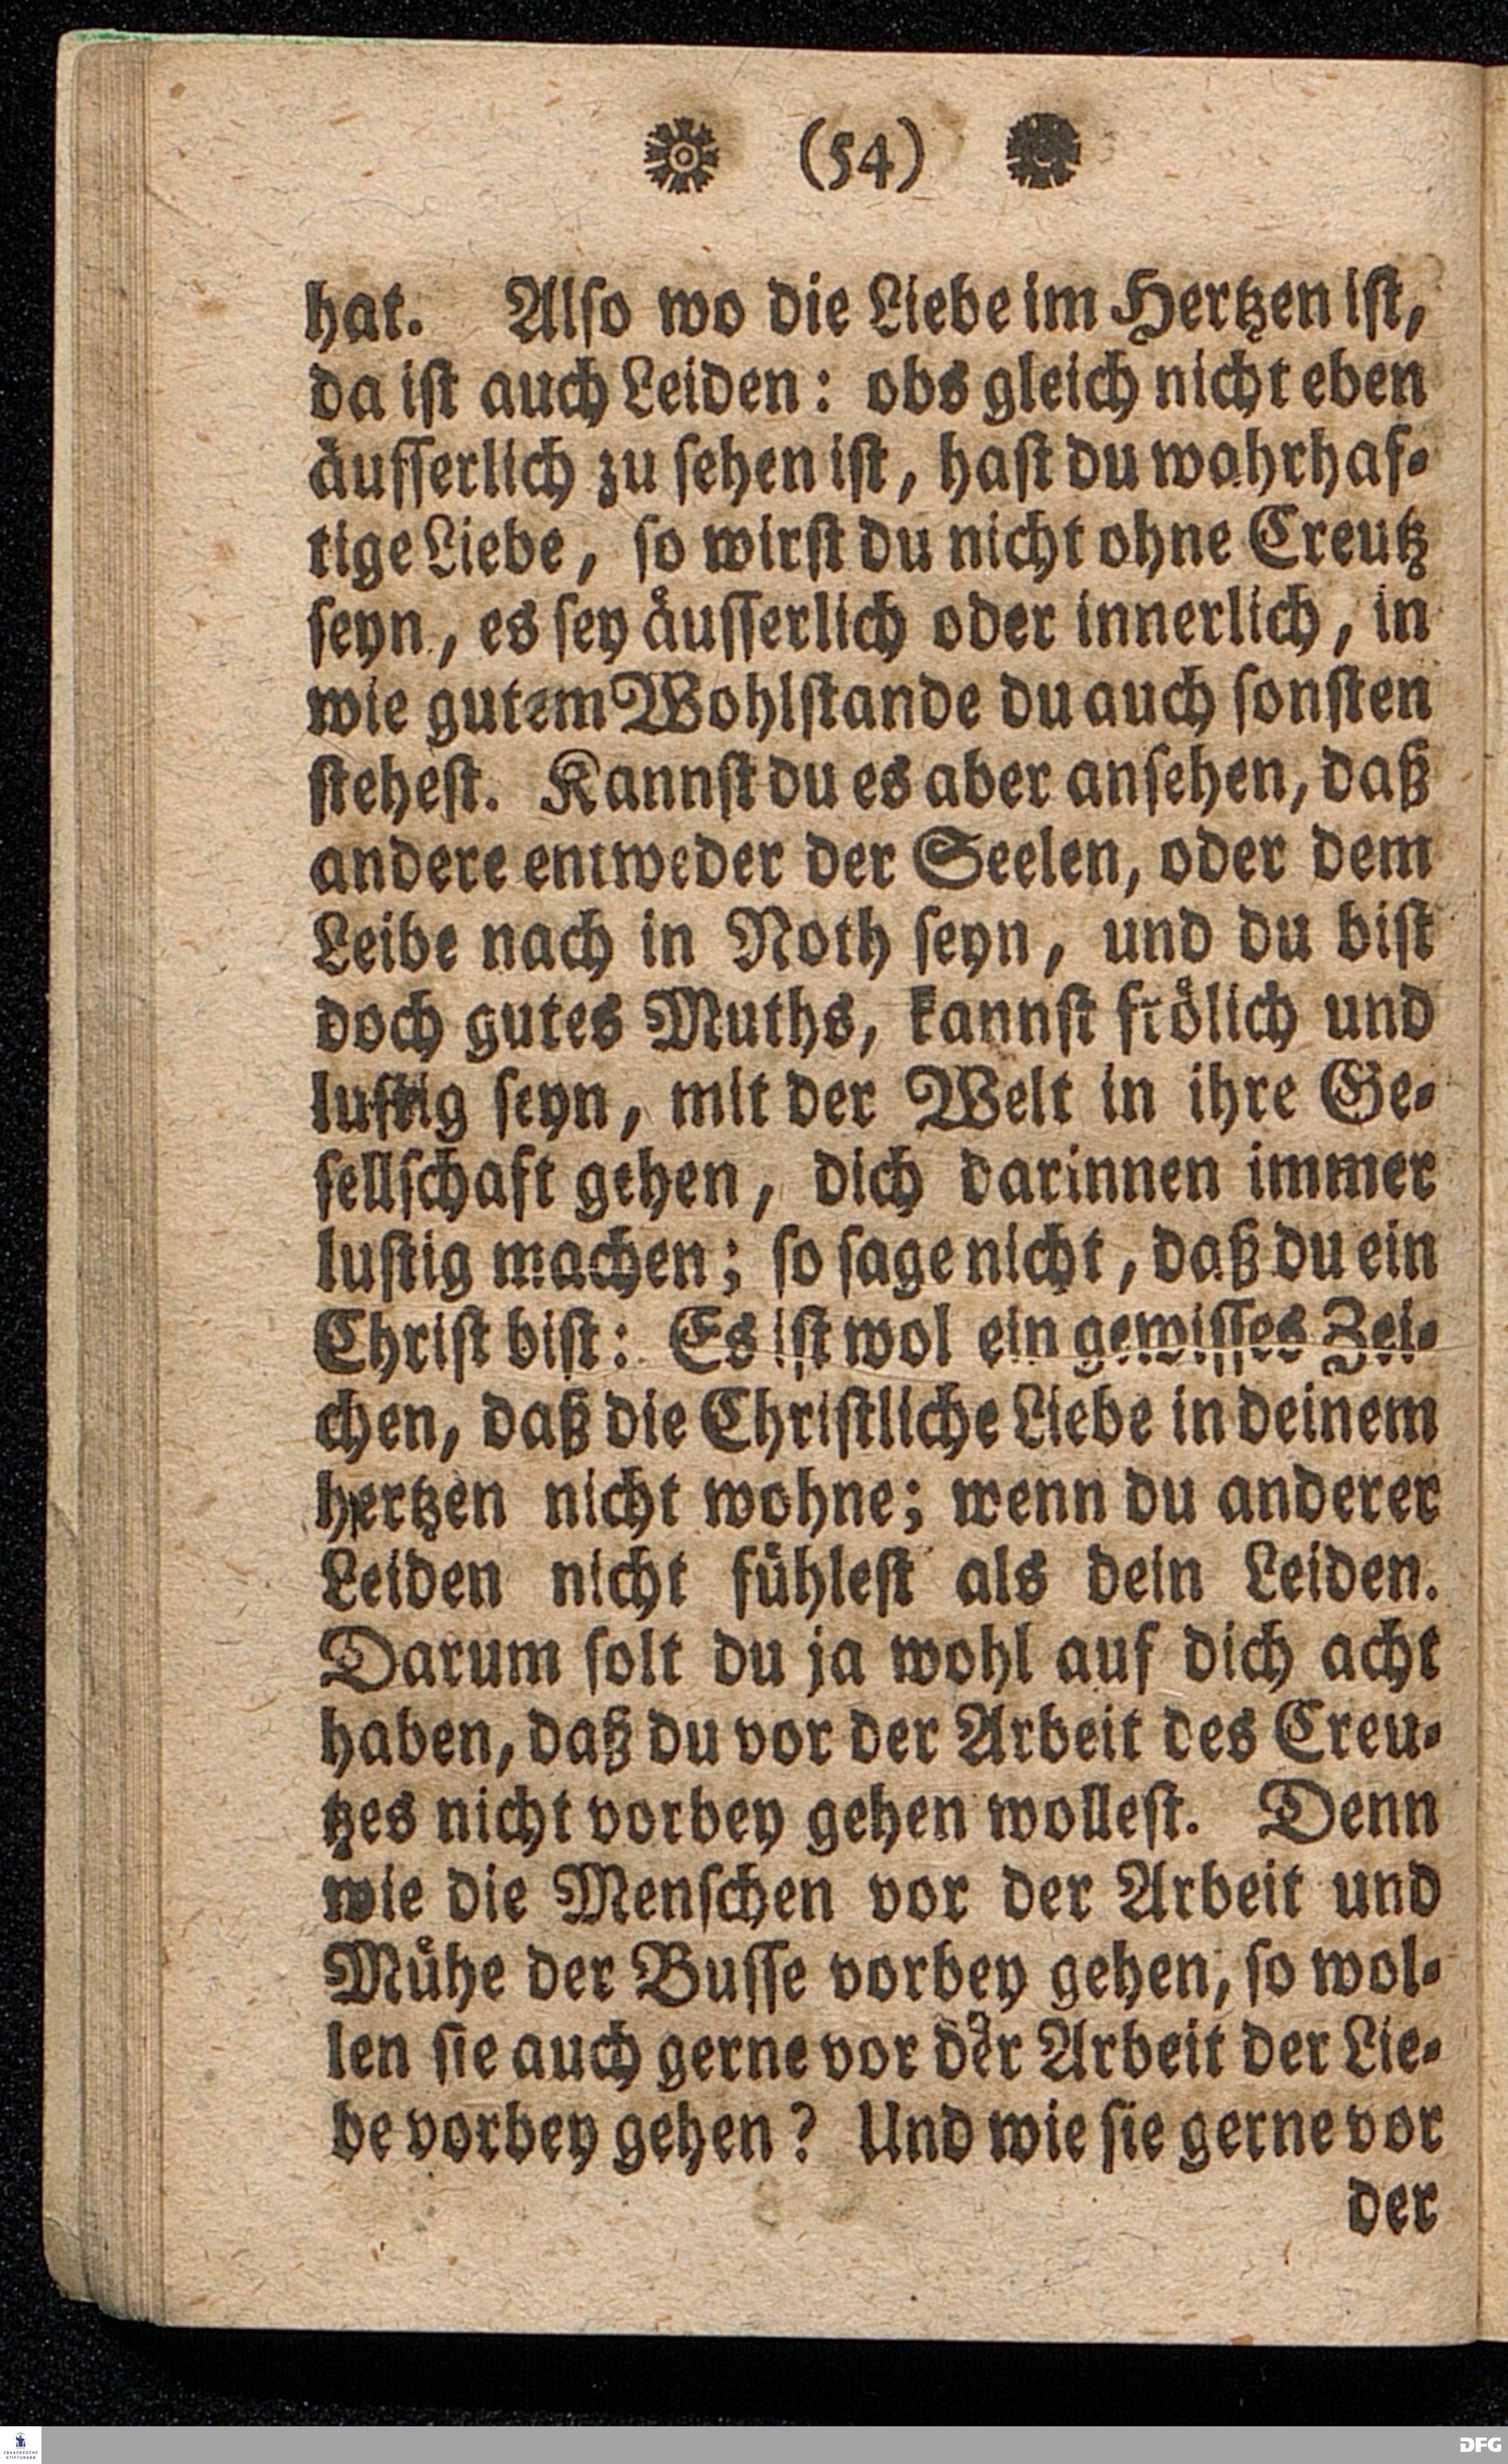 (54)
hat. Also wo die Liebe im Hertzen ist,
da ist auch Leiden: obs gleich nicht eben
äusserlich zu sehen ist, hast du wahrhaf-
tige Liebe, so wirst du nicht ohne Creutz
seyn, es sey äusserlich oder innerlich, in
wie gutem Wohlstande du auch sonsten
stehest. Kannst du es aber ansehen, daß
andere entweder der Seelen, oder dem
Leibe nach in Noth seyn, und du bist
doch gutes Muths, kannst frölich und
lustig seyn, mit der Welt in ihre Ge-
sellschaft gehen, dich darinnen immer
lustig machen; so sage nicht, daß du ein
Christ bist: Es ist wol ein gewisses Zei-
chen, daß die Christliche Liebe in deinem
hertzen nicht wohne; wenn du anderer
Leiden nicht fühlest als dein Leiden.
Darum solt du ja wohl auf dich acht
haben, daß du vor der Arbeit des Creu-
tzes nicht vorbey gehen wollest. Denn
wie die Menschen vor der Arbeit und
Mühe der Busse vorbey gehen, so wol-
len sie auch gerne vor der Arbeit der Lie-
be vorbey gehen? Und wie sie gerne vor
der
FRANCKESCHE
STIFTUNGEN
DFG